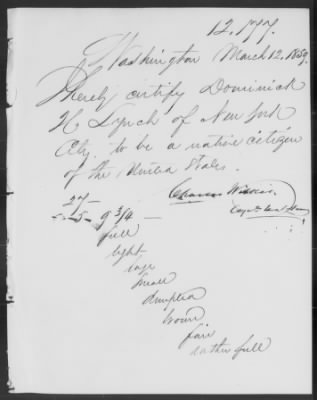 12,777.
Washington March 12. 1859.
I hereby certify Dominick
H Lynch of New York
City to be a native citizen
of the United States.
Charles Wilkes.
27
5 9 3/4
full
light
large
small
dimpled
brown
fair
rather full